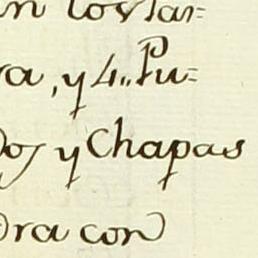 n los lar=
ra, y 4,, Pu=
dos y Chapas
dra con